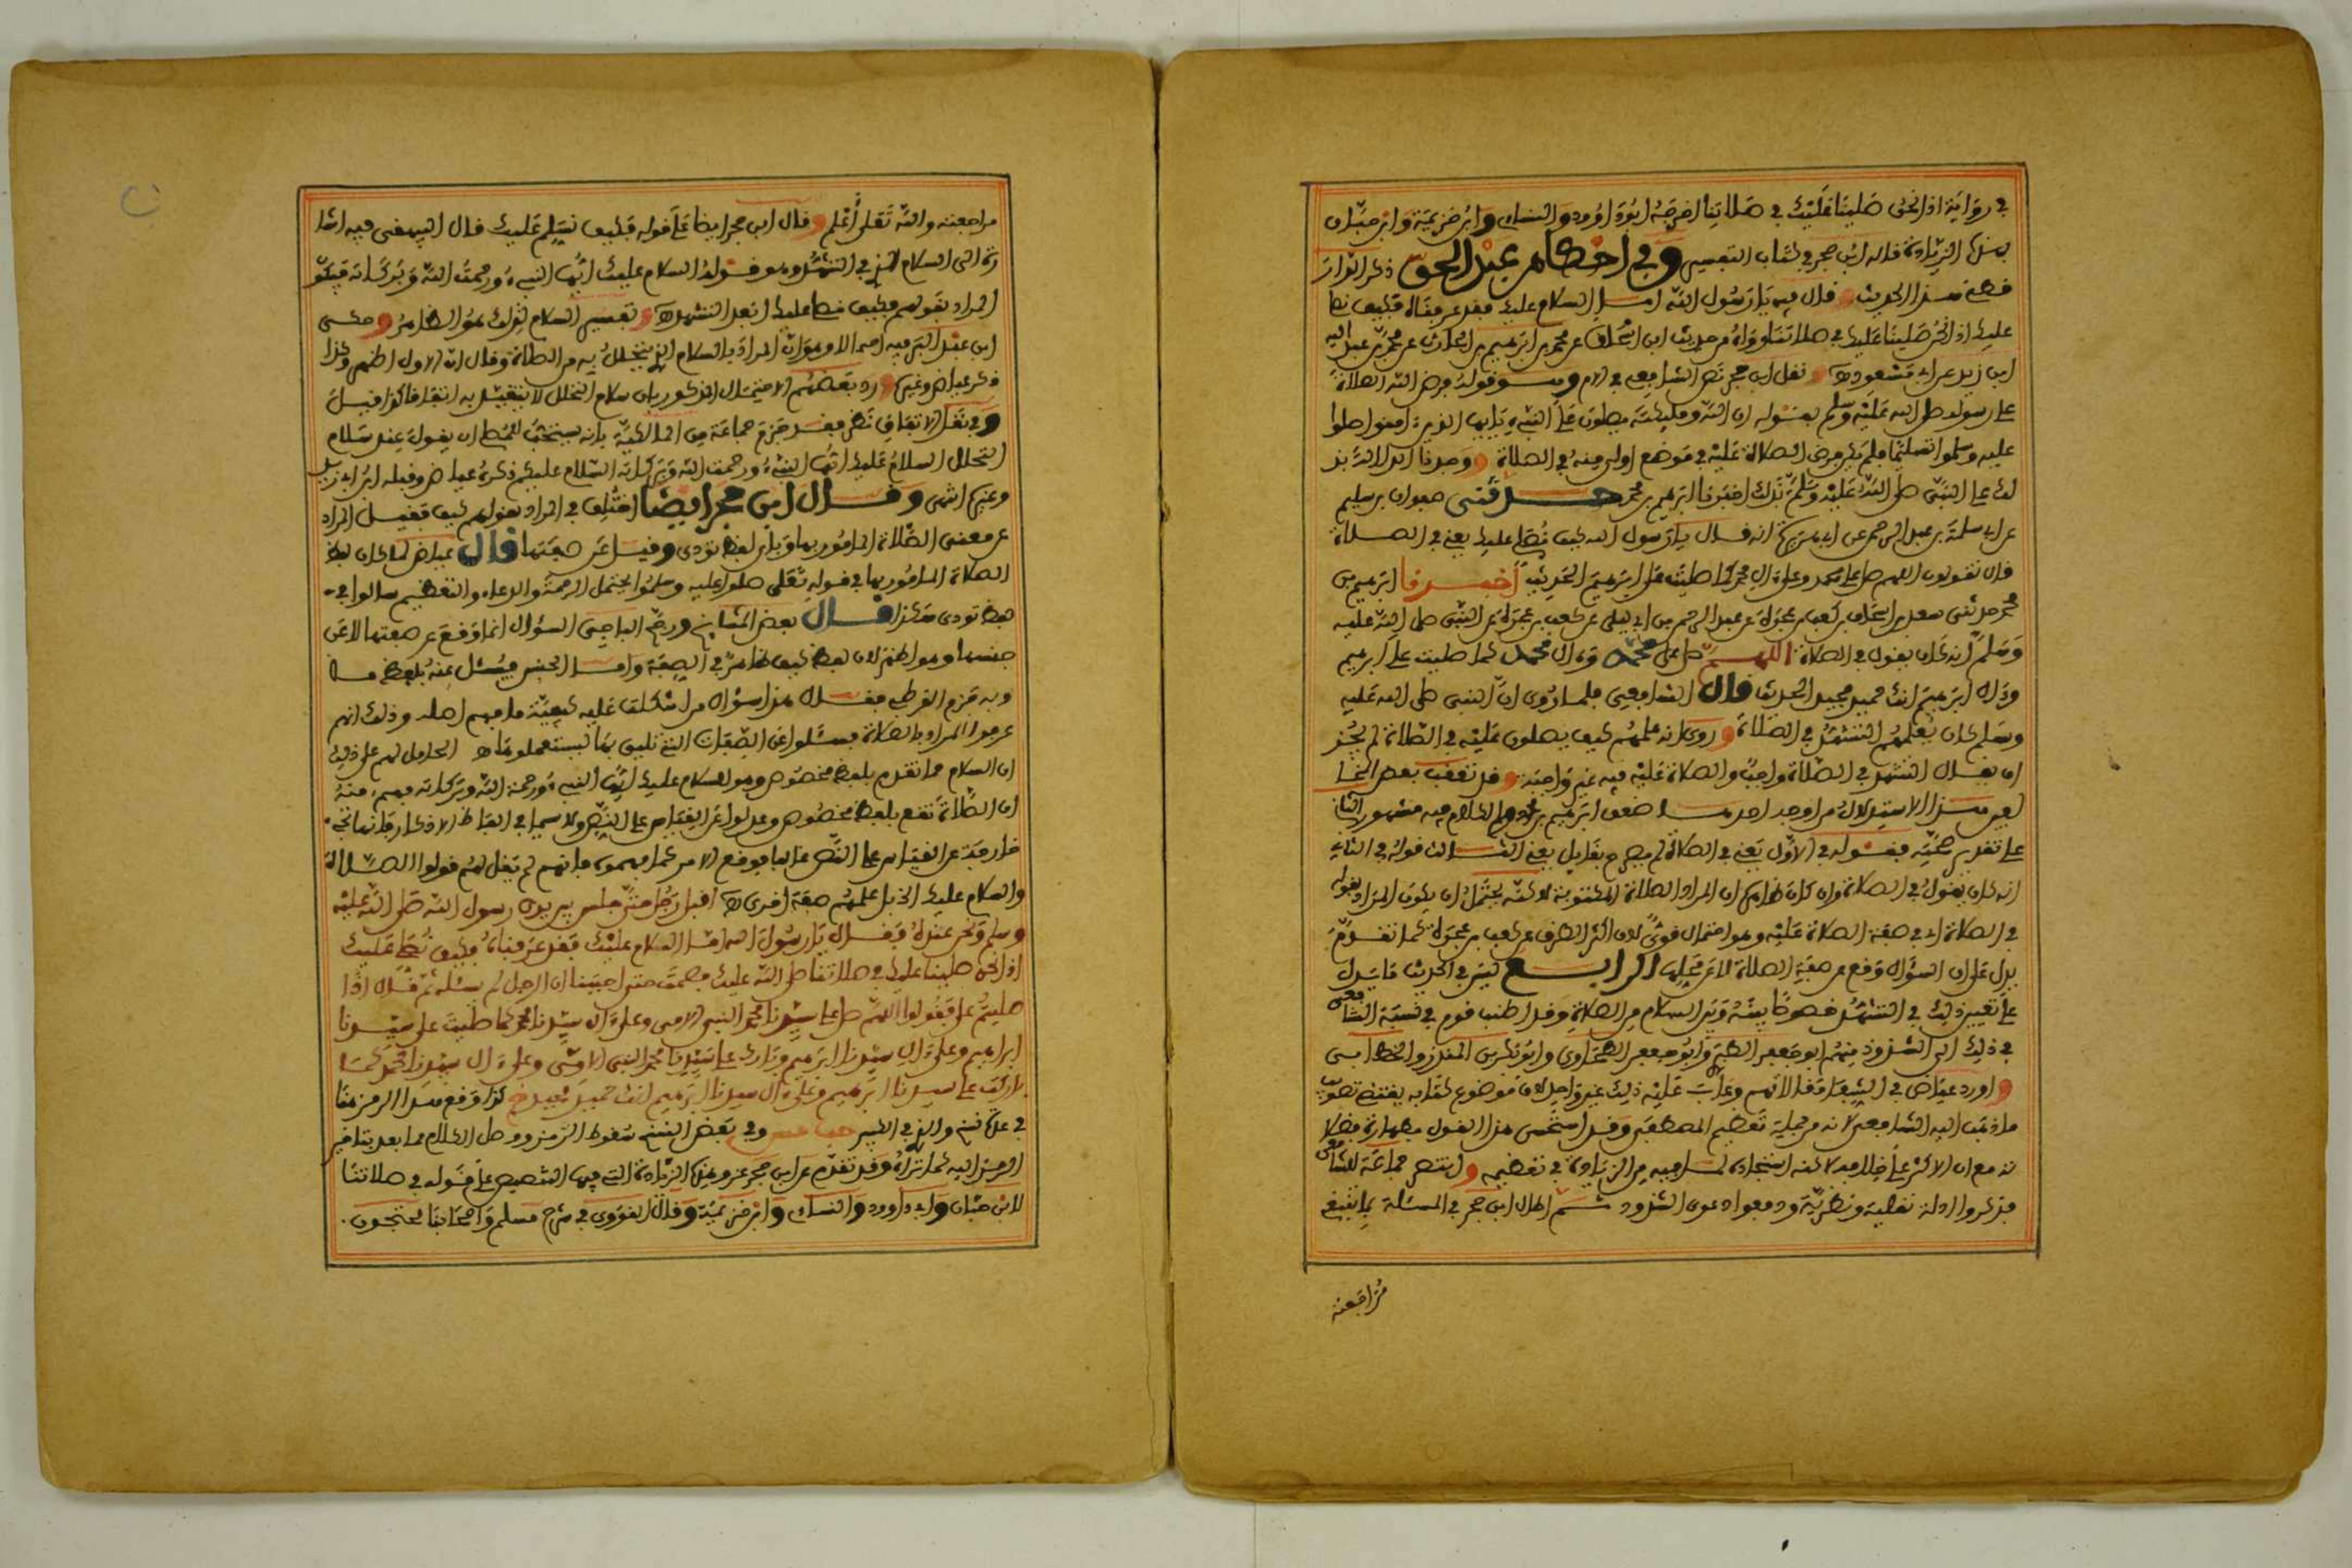 في رواية اذا نحن صلينا عليك في صلاتنا اخرجه ابوداوود والنساءي وابن خزيمة وابن حبان
بهذه الزيادة قاله ابن حجر في كتاب التفسير وفي احكام عبد الحق ذكر البزار
هذا الحديث وقال فيه يا رسول الله اما السلام عليك فقد عرفناه فكيف نصلي
عليك اذا نحن صلينا عليك في صلاتنا رواه من حديث ابن اسحاق عن محمد بن ابرهيم بن الحارث عن محمد بن عبد الله
ابن زيد عن ابي مسعود ونقل ابن حجر نص الشافعي في الام وهو قوله فرض الله الصلاة
على رسوله صلى الله عليه وسلم بقوله ان الله وملئكته يصلون على النبيء يايها الذين ءامنوا صلوا
عليه وسلموا تسليما فلم يكن فرض الصلاة عليه في موضع اولى منه في الصلاة ووجدنا الدلالة بذ
لك عن النبي صلى الله عليه وسلم بذلك اخبرنا ابرهيم بن محمد حدثني صفوان بن سليم
عن ابي سلمة بن عبد الرحمن عن ابي هريرة انه قال يا رسول الله كيف نصلي عليك يعني في الصلاة
قال تقولون اللهم صل على محمد وعلى ءال محمد كما صليت على ابرهيم الحديث أخبرنا ابرهيم بن
محمد حدثني سعد بن اسحاق بن كعب بن عجرة عن عبد الرحمن بن ابي ليلى عن كعب بن عجرة عن النبي صلى الله عليه
وسلم انه كان يقول في الصلاة اللهم صل على محمد وءال محمد كما صليت على ابرهيم
وءال ابرهيم انك حميد مجيد الحديث قال الشافعي فلما روي ان النبي صلى الله عليه
وسلم كان يعلمهم التشهد في الصلاة وروي انه علمهم كيف يصلون عليه في الصلاة لم يجز
ان يقال التشهد في الصلاة واجب والصلاة عليه فيه غير واجبة وقد تعقب بعض المخا
لفين هذا الاستدلال من اوجه احدها ضعف ابرهيم بن محمد والكلام فيه مشهور الثاني
على تقدير صحته فقوله في الاول يعني في الصلاة لم يصرح بقايل يعني الثالث قوله في الثاني
انه كان يقول في الصلاة وان كان ظاهره ان المراد الصلاة المكتوبة لاكنه يحتمل ان يكون المراد بقوله
في الصلاة اي في صفة الصلاة عليه وهو احتمال قوي لان اكثر الطرق عن كعب بن عجرة كما تقدم
يدل على ان السؤال وقع عن صفة الصلاة لا عن محلها الرابع ليس في الحديث ما يدل
على تعيين ذلك في التشهد خصوصا بينه وبين السلام من الصلاة وقد اطنب قوم في نسبة الشافعي
في ذلك الى الشذوذ منهم ابوجعفر الطبري وابوجعفر الطحاوي وابوبكر بن المنذر والخطابي
واورد عياض في الشفا مقالاتهم وعاب عليه ذلك غير واحد لان موضوع كتابه يقتضي تصويب
ما ذهب اليه الشافعي لانه من جملة تعظيم المصطفى وقد استحسن هذا القول بطهارة فضلا
ته مع ان الاكثر على خلافه لاكنه استجاده لما فيه من الزيادة في تعظيمه وانتصر جماعة للشافعي
فذكروا ادلة نقلية ونظرية ودفعوا دعوى الشذوذ ثم اطال ابن حجر في المسئلة بما ينبغي
مراجعته
مراجعته والله تعلى أعلم وقال ابن حجر ايضا على قوله فكيف نسلم عليك قال البيهقي فيه اشا
رة الى السلام الذي في التشهد وهو قوله السلام عليك ايها النبيء ورحمت الله وبركاته فيكون
المراد بقولهم فكيف نصلي عليك اي بعد التشهد وتفسير السلام بذلك هو الظاهر وحكى
ابن عبد البر فيه احتمالا وهو ان المراد بالسلام الذي يتحلل به من الصلاة وقال ان الاول اظهر وكذا
ذكر عياض وغيره ورد بعضهم الاحتمال المذكور بان سلام التحلل لا يتقيد به اتفاقا كذا قيل
وفي نقل الاتفاق نظر فقد جزم جماعة من المالكية بانه يستحب للمصلي ان يقول عند سلام
التحلل السلام عليك ايها النبيء ورحمت الله وبركاته السلام عليكم ذكره عياض وقبله ابن ابي زيد
وغيره انتهى وقال ابن حجر ايضا اختلف في المراد بقولهم كيف فقيل المراد
عن معنى الصلاة المامور بها وباي لفظ تودى وقيل عن صفتها قال عياض لما كان لفظ
الصلاة المامور بها في قوله تعلى صلوا عليه وسلموا يحتمل الرحمة والدعاء والتعظيم سالوا بأي
لفظ تودى هكذا قال بعض المشايخ ورجح الباجي السؤال انما وقع عن صفتها لا عن
جنسها وهو اظهر لان لفظ كيف ظاهر في الصفة واما الجنس فيسئل عنه بلفظ ما
وبه جزم القرطبي فقال هذا سؤال من اشكلت عليه كيفية ما فهم اصله وذلك انهم
عرفوا المراد بالصلاة فسئلوا عن الصفة التي تليق بها ليستعملوها الحامل لهم على ذلك
ان السلام لما تقدم بلفظ مخصوص وهو السلام عليك ايها النبيء ورحمة الله وبركاته فهموا منه
ان الصلاة تقع بلفظ مخصوص وعدلوا عن القياس على النص ولا سيما في الفاظ الاذكار فانها تجيء
خارجة عن القياس على النص غالبا فوقع الامر كما فهموه فانهم لم يقل لهم قولوا الصلاة
والسلام عليك الخ بل علمهم صفة اخرى اقبل رجل حتى جلس بين يدي رسول الله صلى الله عليه
وسلم ونحن عنده فقال يا رسول الله اما السلام عليك فقد عرفناه فكيف نصلي عليك
اذا نحن صلينا عليك في صلاتنا صلى الله عليك فصمت حتى احببنا ان الرجل لم يسئله ثم قال اذا
صليتم علي فقولوا اللهم صل على سيدنا محمد النبي الامي وعلى ءال سيدنا محمد كما صليت على سيدنا
ابراهيم وعلى ءال سيدنا ابرهيم وبارك على سيدنا محمد النبي الامي وعلى ءال سيدنا محمد كما
باركت على سيدنا ابرهيم وعلى ءال سيدنا ابرهيم انك حميد مجيد كذا وقع هذا الرمز هنا
في عدة نسخ والذي في الكبير وفي بعض النسخ سقوط الرمز ووصل الكلام بما بعده بتاخير
الرمز اليه كما تراه وقد تقدم عن ابن حجر عزو هذه الزيادة التي فيها التنصيص على قوله في صلاتنا
لابن حبان وابي داوود والنساءي وابن خزيمة وقال النووي في شرح مسلم واصحابنا يحتجون